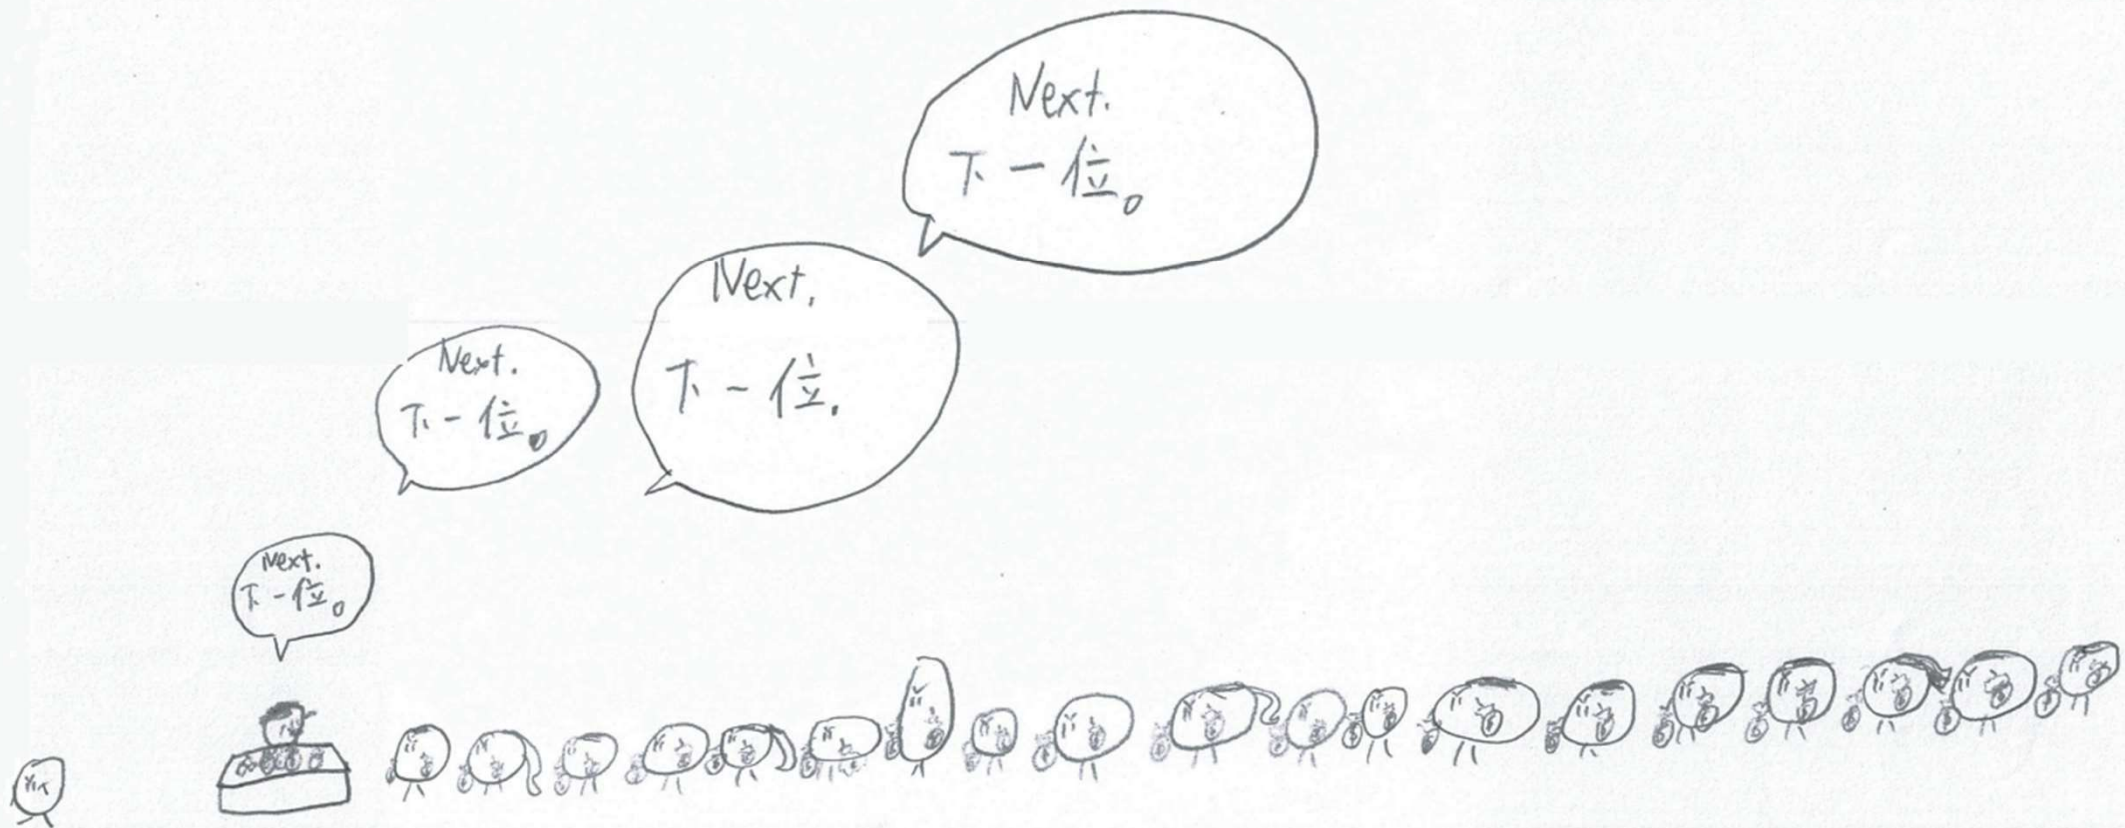 Next.
下一位。
Next.
下一位.
Next.
下一位。
Next.
下一位。